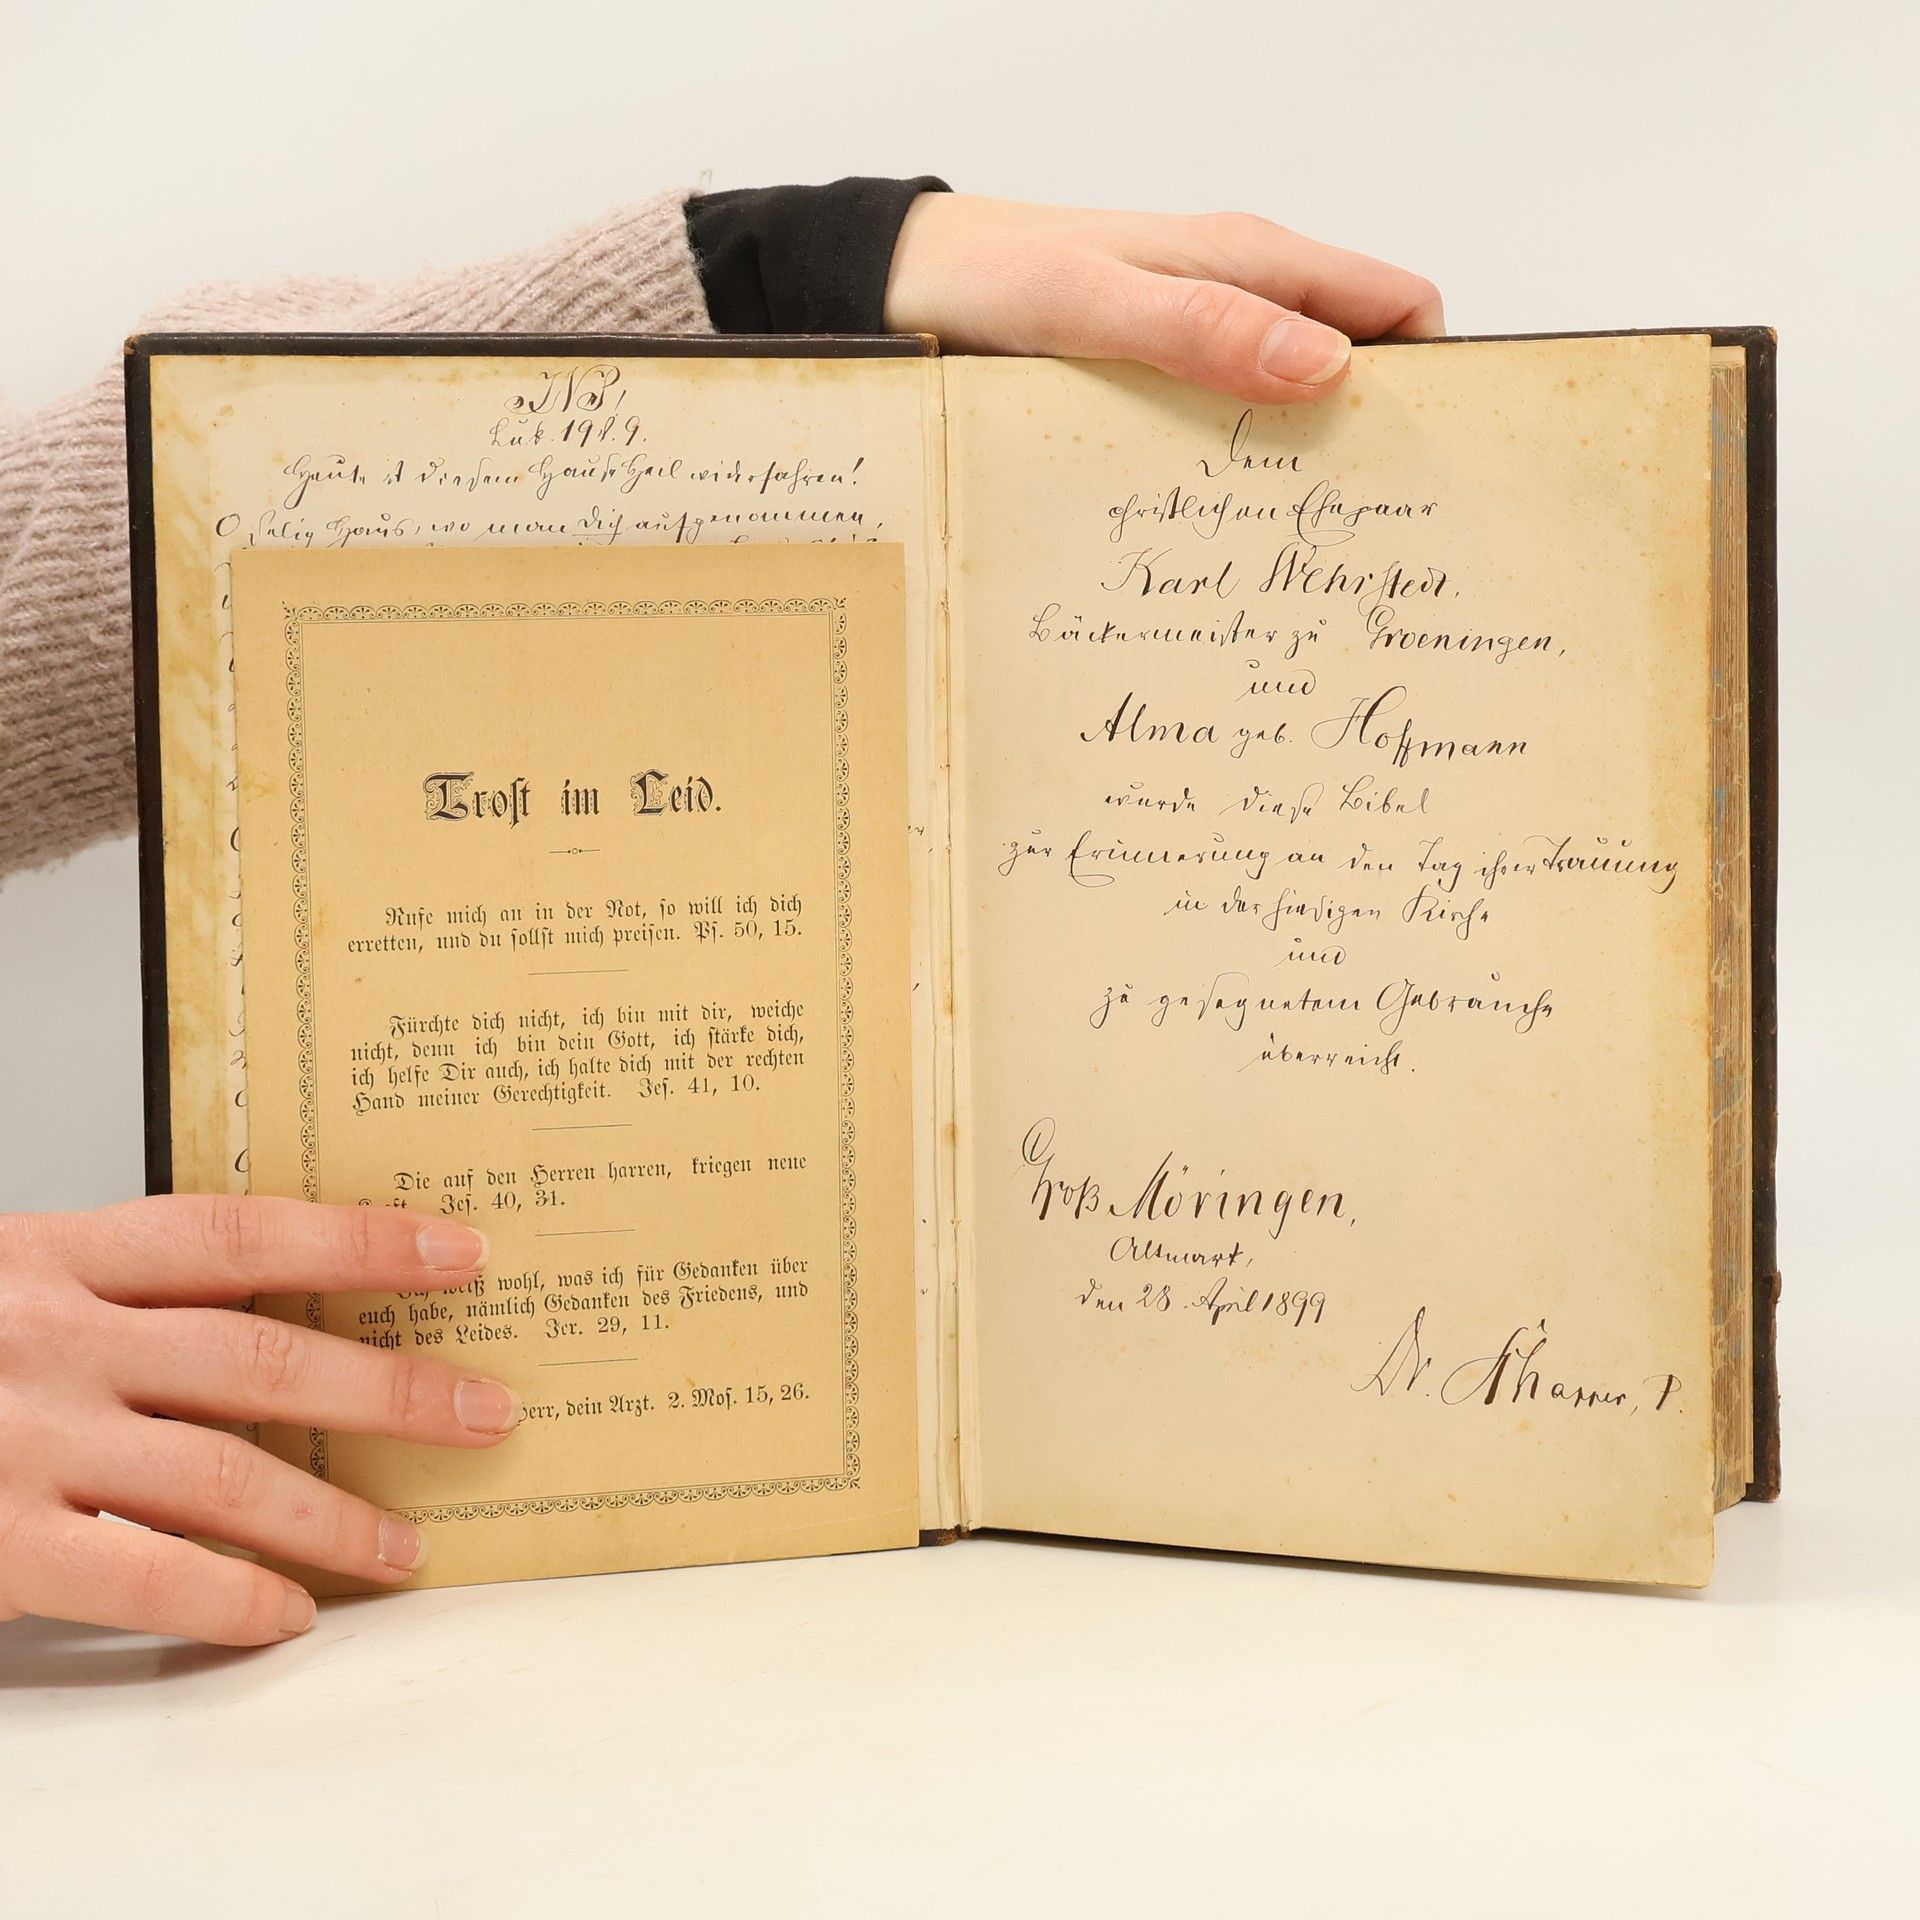 Luk. 19 v. 9.
Heute ist diesem Hause Heil widerfahren!
O selig Haus, wo man Dich aufgenommen,
Trost im Leid.
Rufe mich an in der Not, so will ich dich
erretten, und du sollst mich preisen. Ps. 50, 15.
Fürchte dich nicht, ich bin mit dir, weiche
nicht, denn ich bin dein Gott, ich stärke dich,
ich helfe Dir auch, ich halte dich mit der rechten
Hand meiner Gerechtigkeit. Jes. 41, 10.
Die auf den Herren harren, kriegen neue
Jes. 40, 31.
weiß wohl, was ich für Gedanken über
euch habe, nämlich Gedanken des Friedens, und
nicht des Leides. Jer. 29, 11.
Herr, dein Arzt. 2. Mos. 15, 26.
Dem
christlichen Ehepaar
Karl Wehrstedt,
Bäckermeister zu Groeningen,
und
Alma geb. Hoffmann
wurde diese Bibel
zur Erinnerung an den Tag ihrer Trauung
in der hiesigen Kirche
und
zu gesegnetem Gebrauche
überreicht.
Groß Möringen,
Altmark,
den 28. April 1899
Dr.